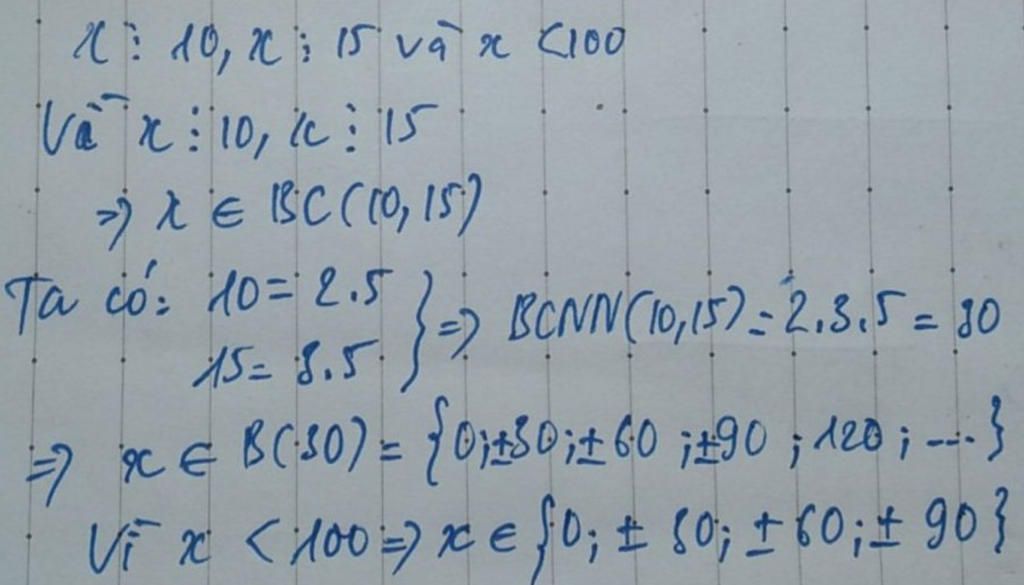 x ⋮ 10, x ⋮ 15 và x < 100
Vì x ⋮ 10, x ⋮ 15
=> x ∈ BC(10,15)
Ta có: 10 = 2.5
15 = 3.5 } => BCNN(10,15) = 2.3.5 = 30
=> x ∈ B(30) = {0; ±30; ±60; ±90; 120; ...}
Vì x < 100 => x ∈ {0; ±30; ±60; ±90}